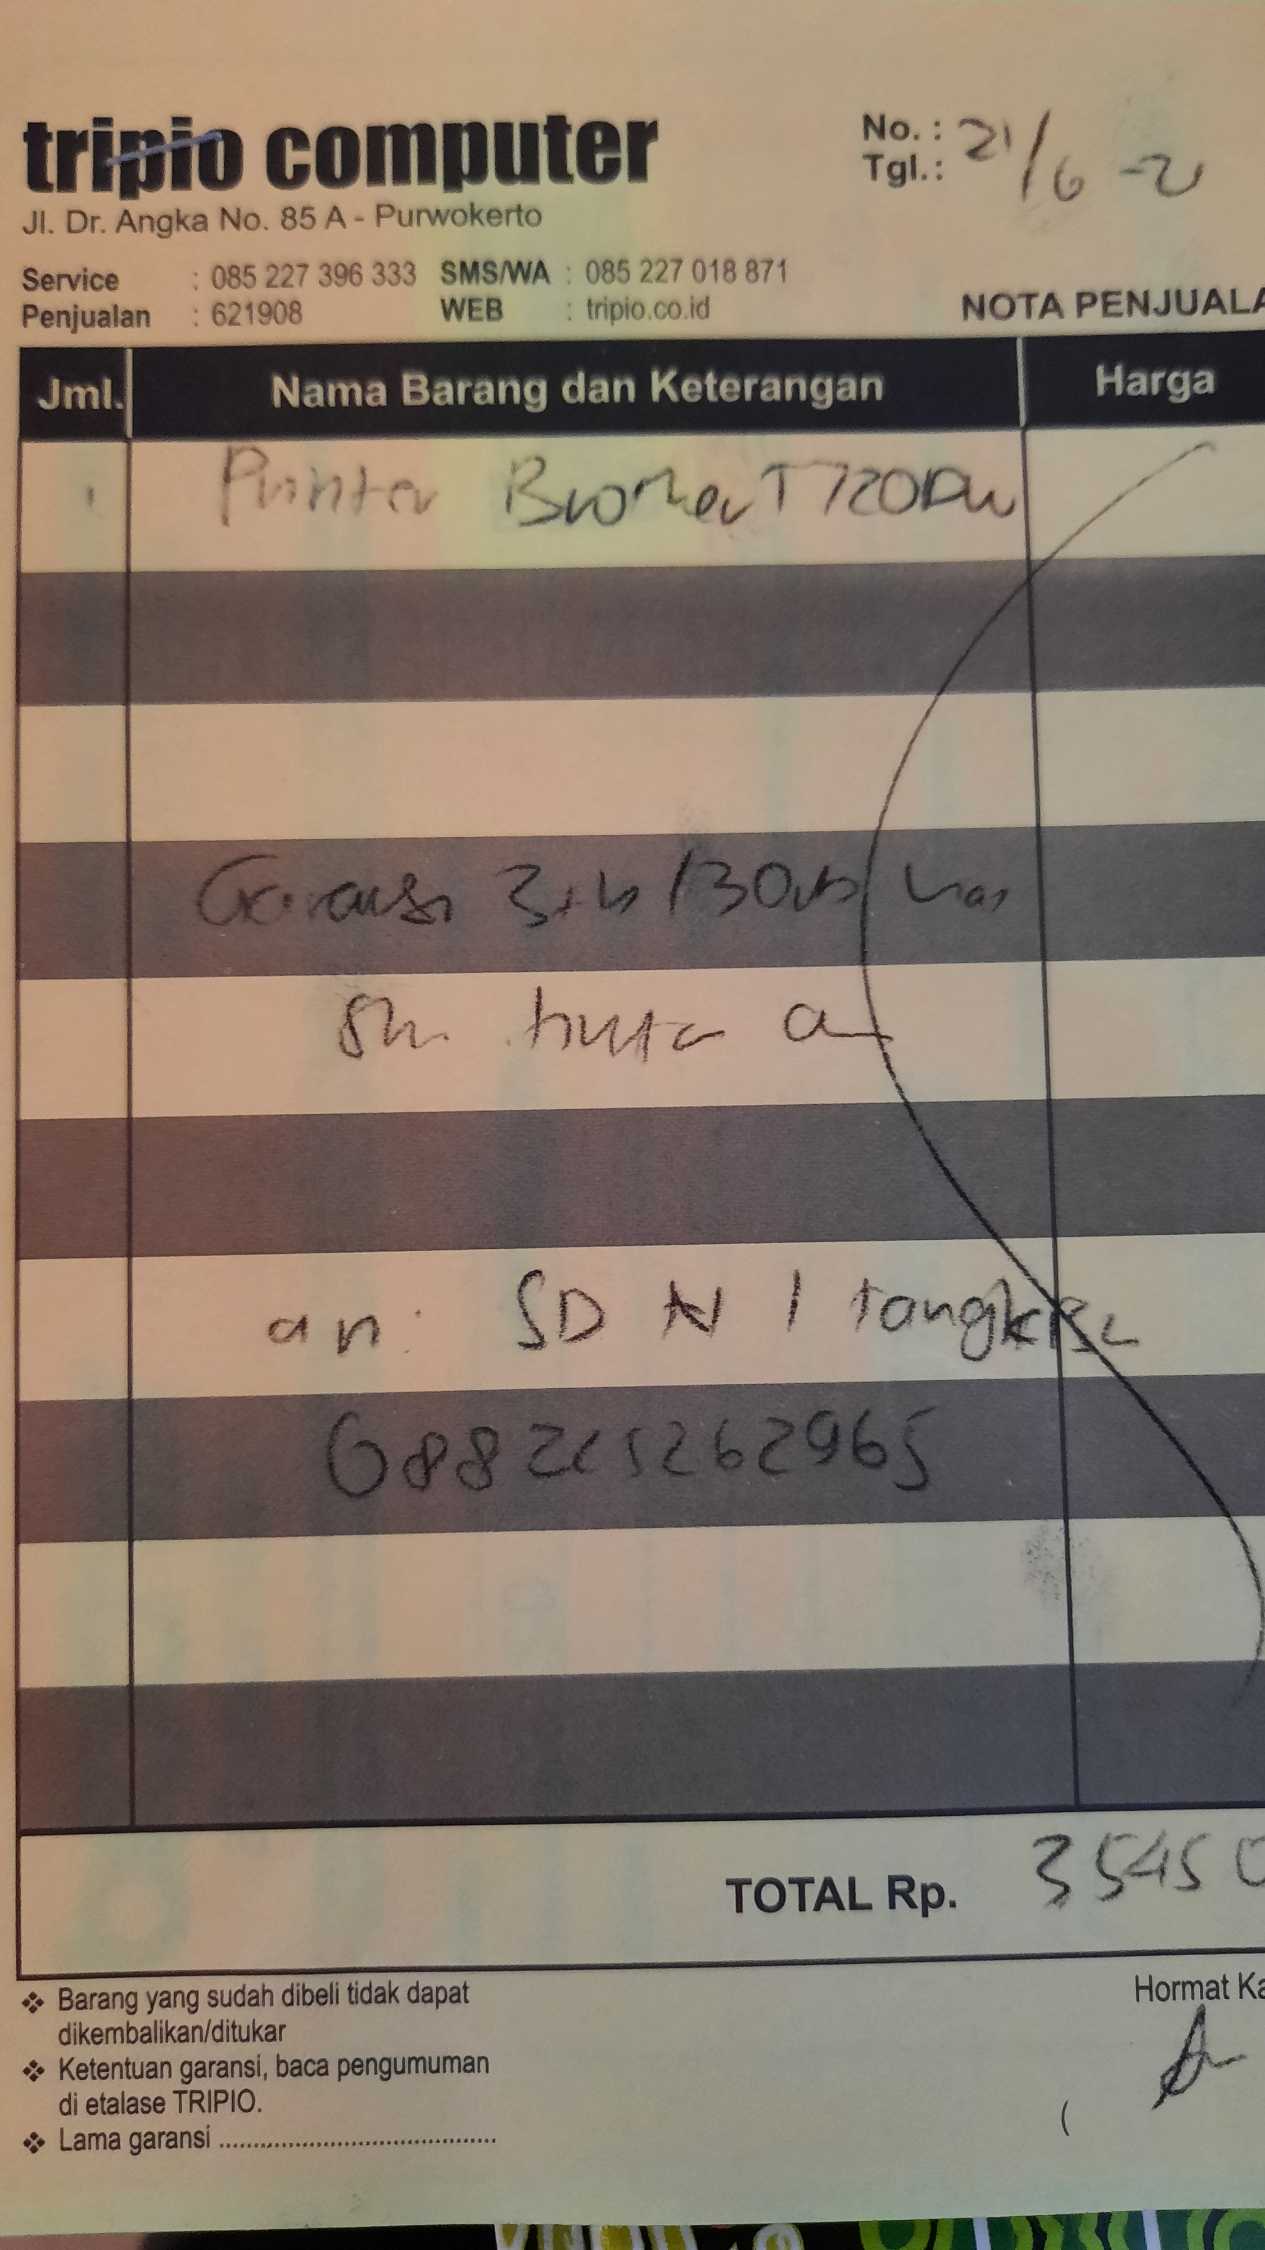 tripio computer
No. :
Jl. Dr. Angka No. 85 A - Purwokerto
Tgl.: 21/6 -21
Service : 085 227 396 333 SMS/WA : 085 227 018 871
Penjualan : 621908 WEB : tripio.co.id
NOTA PENJUALA
Jml. Nama Barang dan Keterangan Harga
1 Printer Brother T720DW
Garansi 3th /30
an: SD N 1 tangkisc
TOTAL Rp. 35450
❖ Barang yang sudah dibeli tidak dapat
dikembalikan/ditukar
Hormat Ka
❖ Ketentuan garansi, baca pengumuman
di etalase TRIPIO.
❖ Lama garansi ..........................................
(